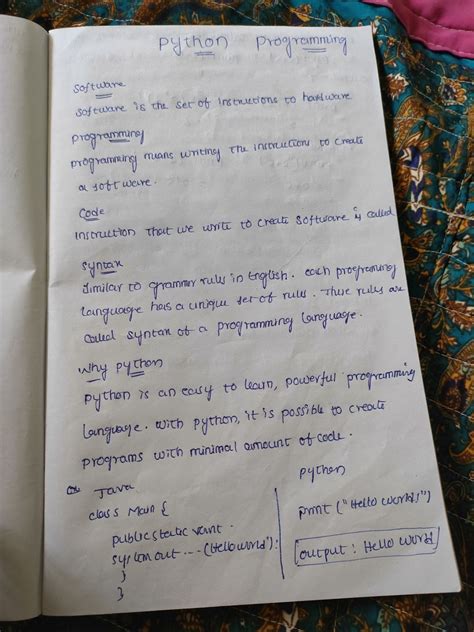 Python Programming
Software
Software is the set of instructions to hardware
Programming
programming means writing the instructions to create
a software.
Code
instruction that we write to create software is called
Syntax
Similar to grammer rules in English. each programing
language has a unique set of rules. These rules are
called syntax of a programming language.
Why python
Python is an easy to learn, powerful programming
language. With python, it is possible to create
programs with minimal amount of code.
Java
class Main {
public static
system out ... (Hello world');
}
}
python
print ("Hello world!")
output : Hello world